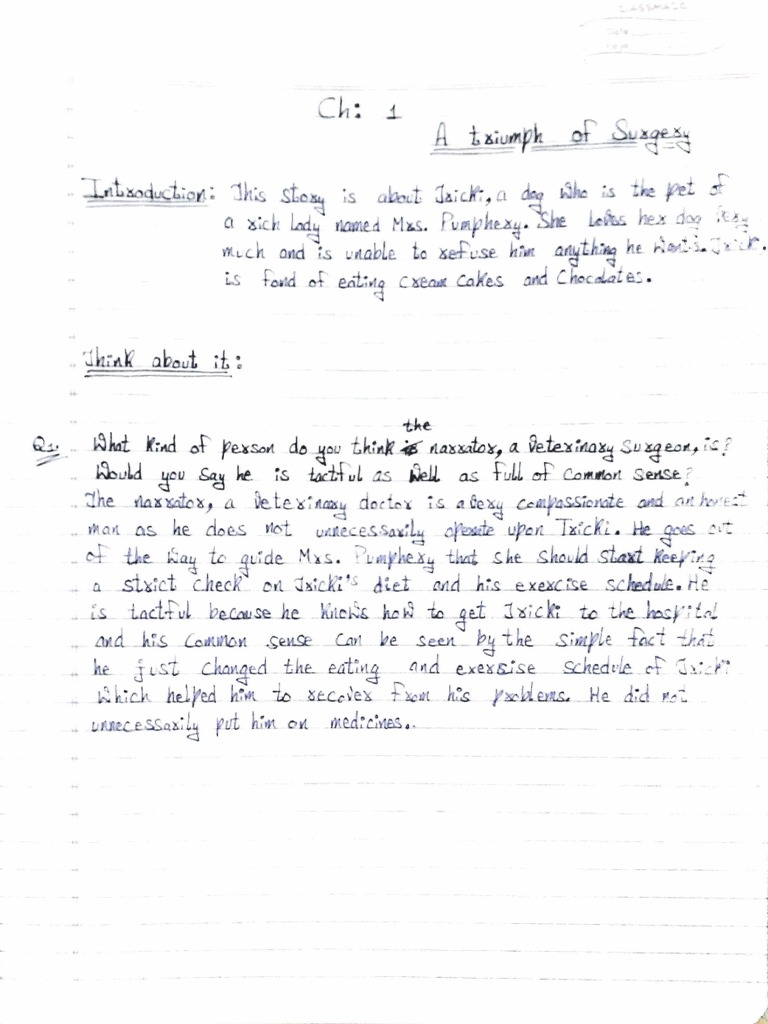 CLASSMATE
Date
Page
Ch: 1
A triumph of Surgery
Introduction: This Story is about Tricki, a dog who is the pet of
a rich lady named Mrs. Pumphery. She Loves her dog Very
much and is unable to refuse him anything he wants. Tricki
is fond of eating cream cakes and Chocolates.
Think about it:
the
Q1. What kind of person do you think narrator, a Veterinary Surgeon, is?
Would you say he is tactful as well as full of common sense?
The narrator, a Veterinary doctor is a very compassionate and an honest
man as he does not unnecessarily operate upon Tricki. He goes out
of the way to guide Mrs. Pumphery that she should start keeping
a strict check on Tricki's diet and his exercise schedule. He
is tactful because he knows how to get Tricki to the hospital
and his common sense can be seen by the simple fact that
he just changed the eating and exersise schedule of Tricki
which helped him to recover from his problems. He did not
unnecessarily put him on medicines..